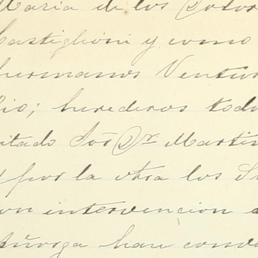 Maria de los Dolor
Castiglioni y como
hermanos Ventur
lio; herederos todo
itado Sor Dr Martin
y por la otra los S
on intervencion d
han conve